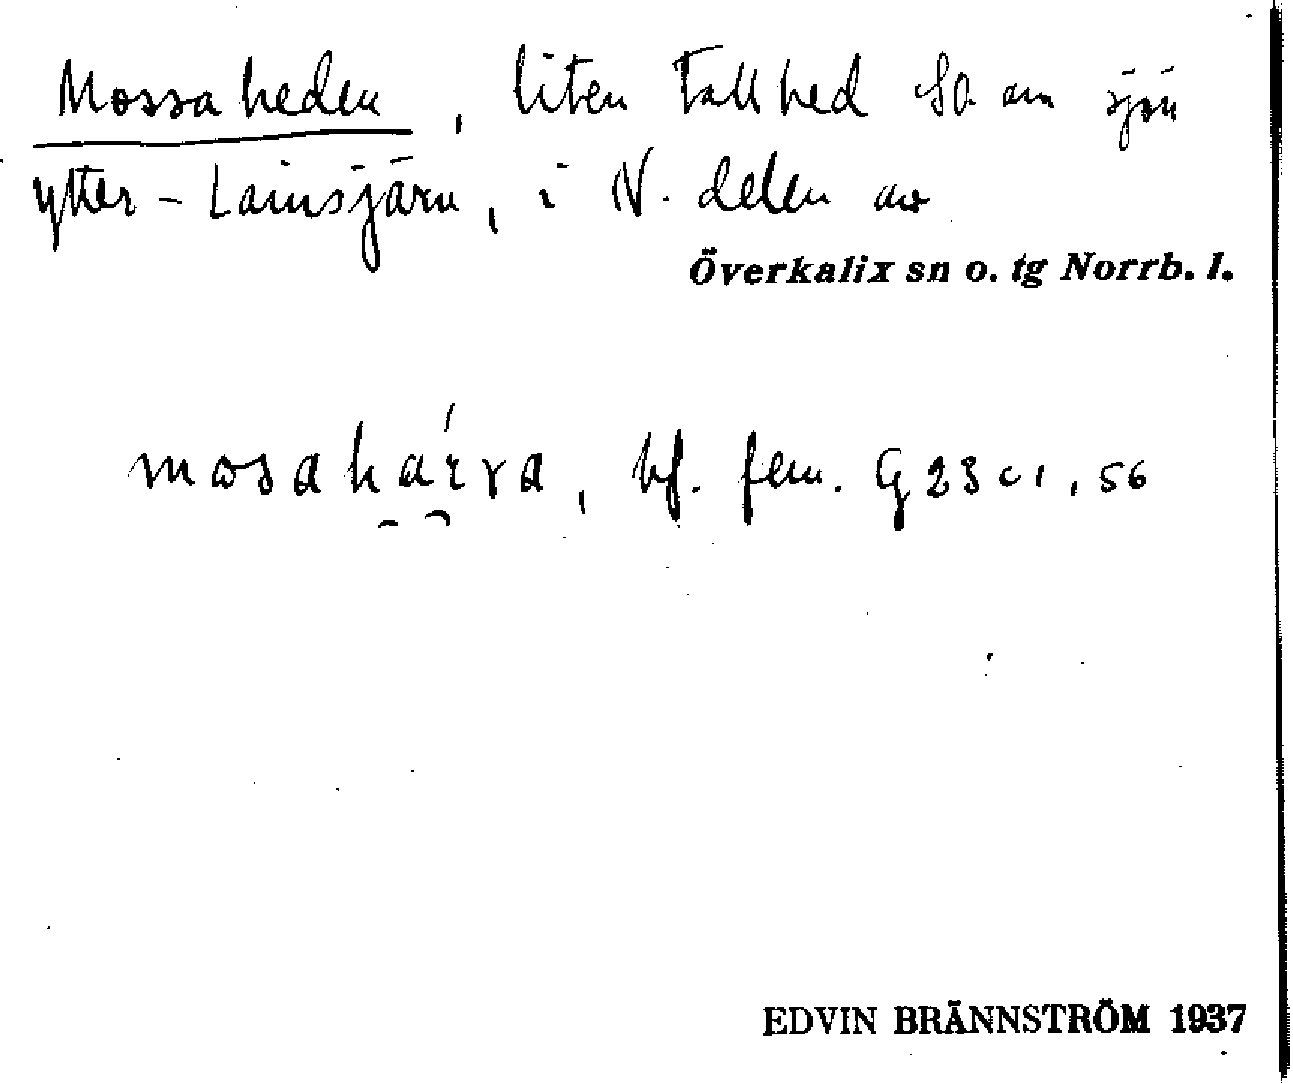 Mossaheden, liten tallhed SO. om sjön
ytter-Lainsjärv, i N. delen av
Överkalix sn o. tg Norrb. l.
mosaháɪva, bf. fem. G 23 c 1, 56
EDVIN BRÄNNSTRÖM 1937